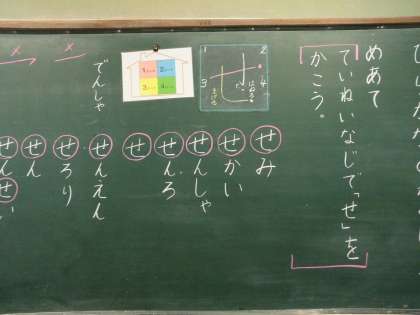 めあて
ていねいなじで「せ」を
かこう。
1
2
3
4
せみ
せかい
せんしゃ
せんろ
せ
でんしゃ
せんえん
せろり
せん
せんせい